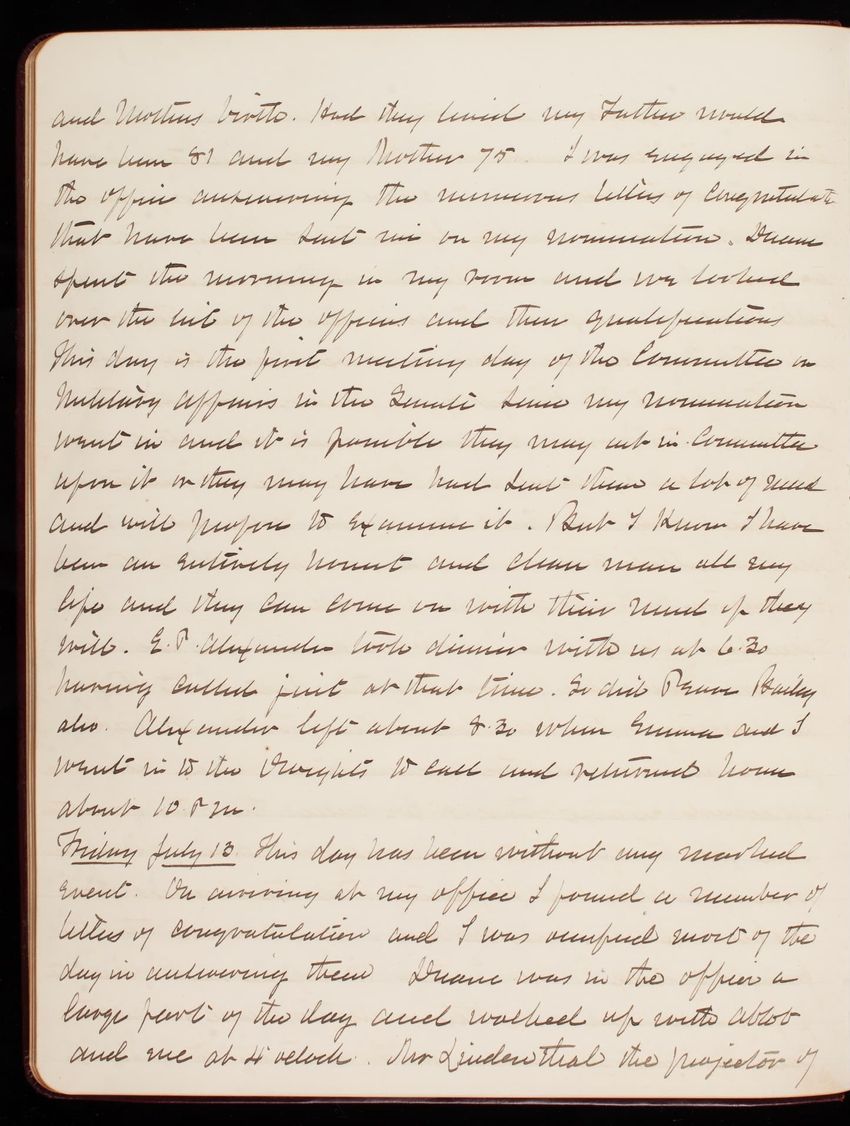 and Mothers birth. Had they lived my Father would
have been 81 and my Mother 75. I was engaged in
the office answering the numerous letters of Congratulati
that have been sent me on my nomination. Duane
spent the morning in my room and we looked
over the list of the officers and their qualifications
This day is the first meeting day of the Committee on
Military affairs in the Senate since my nomination
went in and it is possible they may act in Committee
upon it or they may have had sent them a lot of mud
and will propose to examine it. But I know I have
been an entirely honest and clean man all my
life and they can come on with their mud if they
will. E. P. Alexander took dinner with us at 6.30
having called just at that time. So did Bailey
also. Alexander left about 8.30 when Emma and I
went in to the Wrights to call and returned home
about 10 P m.
Friday July 13. This day has been without any marked
event. On arriving at my office I found a number of
letters of congratulation and I was occupied most of the
day in answering them Duane was in the office a
large part of the day and walked up with Abbot
and me at 4 oclock. Mr Lindenthal the projector of